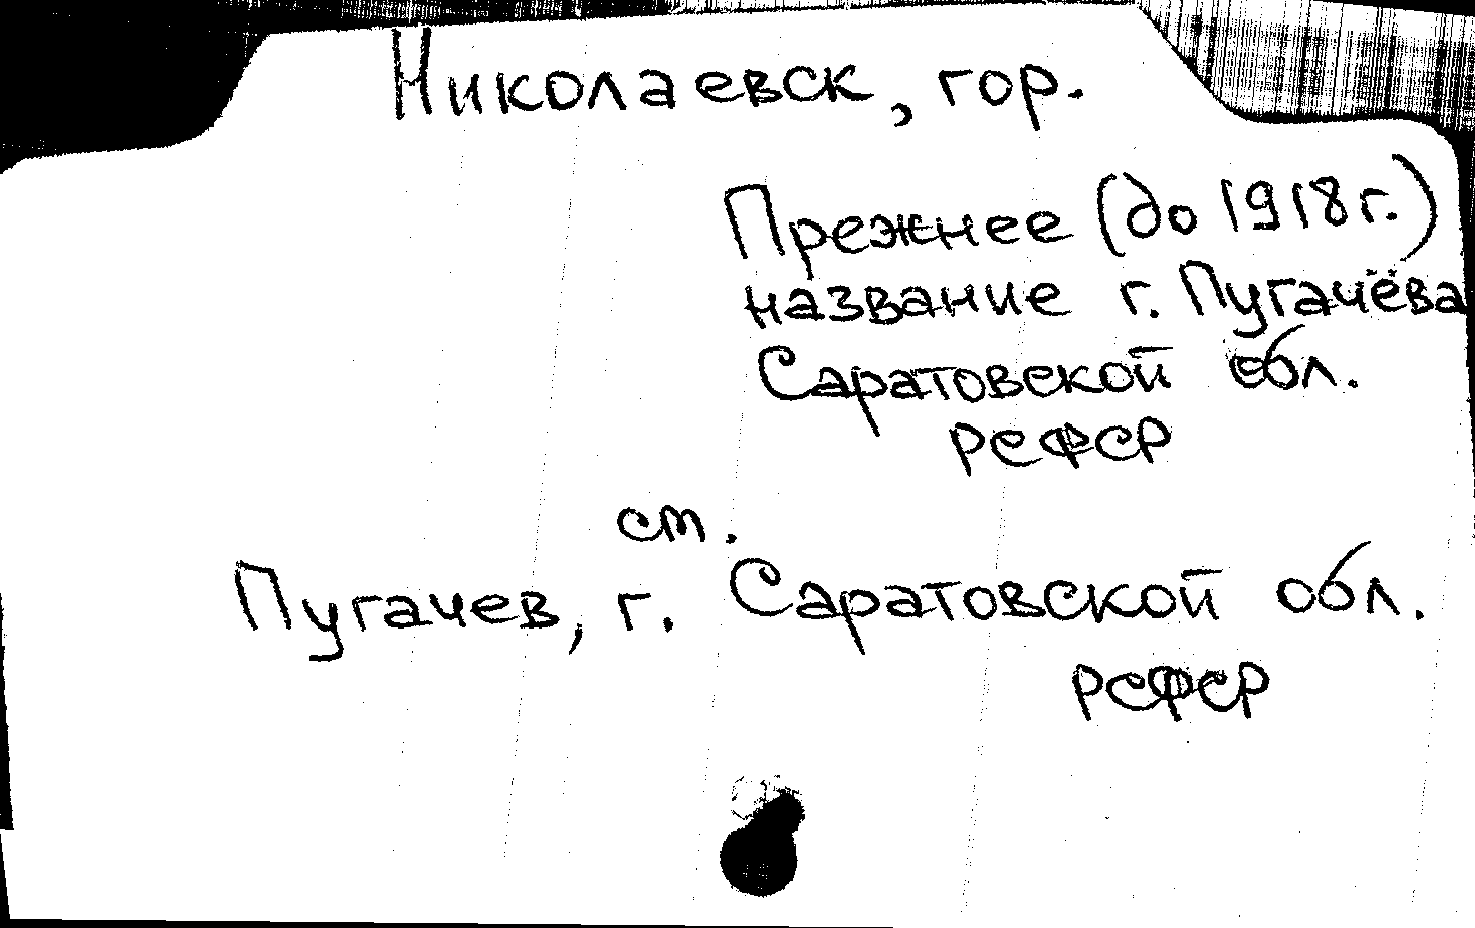 Николаевск, гор.
Прежнее (до 1918г.)
название г. Пугачёва
Саратовской обл.
РСФСР
см.
Пугачев, г. Саратовской обл.
РСФСР